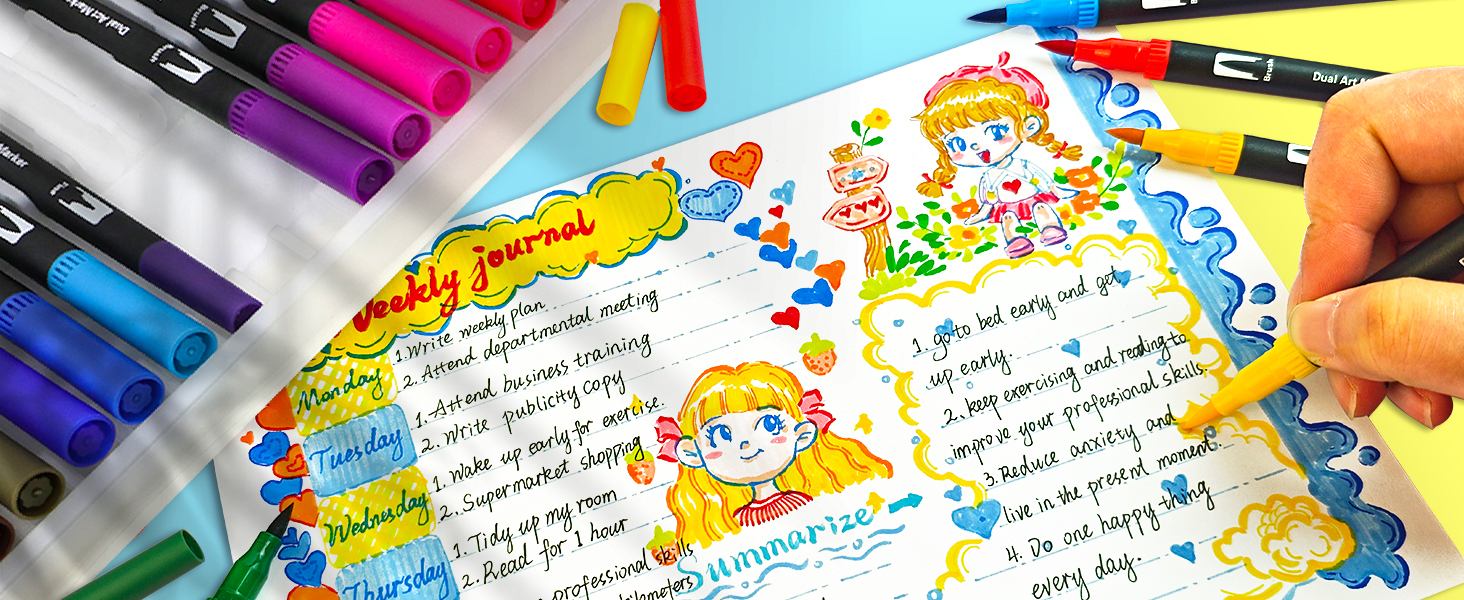 Dual Art Marker
Brush
Brush
Marker
Brush
Brush
Dual Art
Weekly journal
Monday
1. Write weekly plan
2. Attend departmental meeting
Tuesday
1. Attend business training
2. Write publicity copy
Wednesday
1. Wake up early for exercise.
2. Supermarket shopping
Thursday
1. Tidy up my room
2. Read for 1 hour
professional skills
kilometers
Summarize
1. go to bed early and get
up early.
2. keep exercising and reading to
improve your professional skills.
3. Reduce anxiety and
live in the present moment.
4. Do one happy thing
every day.